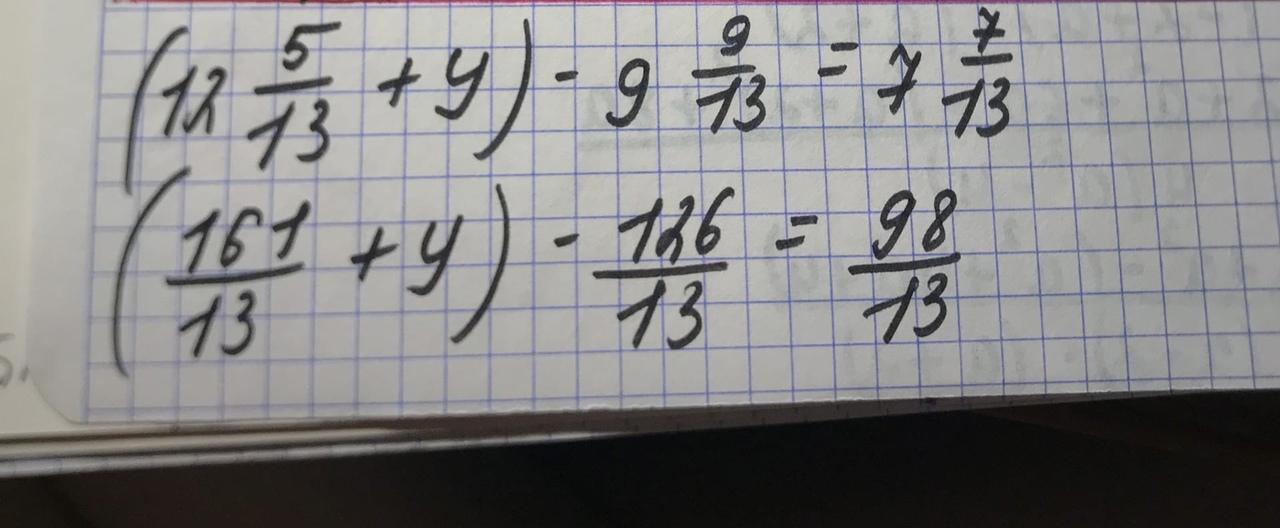 (12 5/13 + y) - 9 9/13 = 7 7/13
(161/13 + y) - 126/13 = 98/13
5.